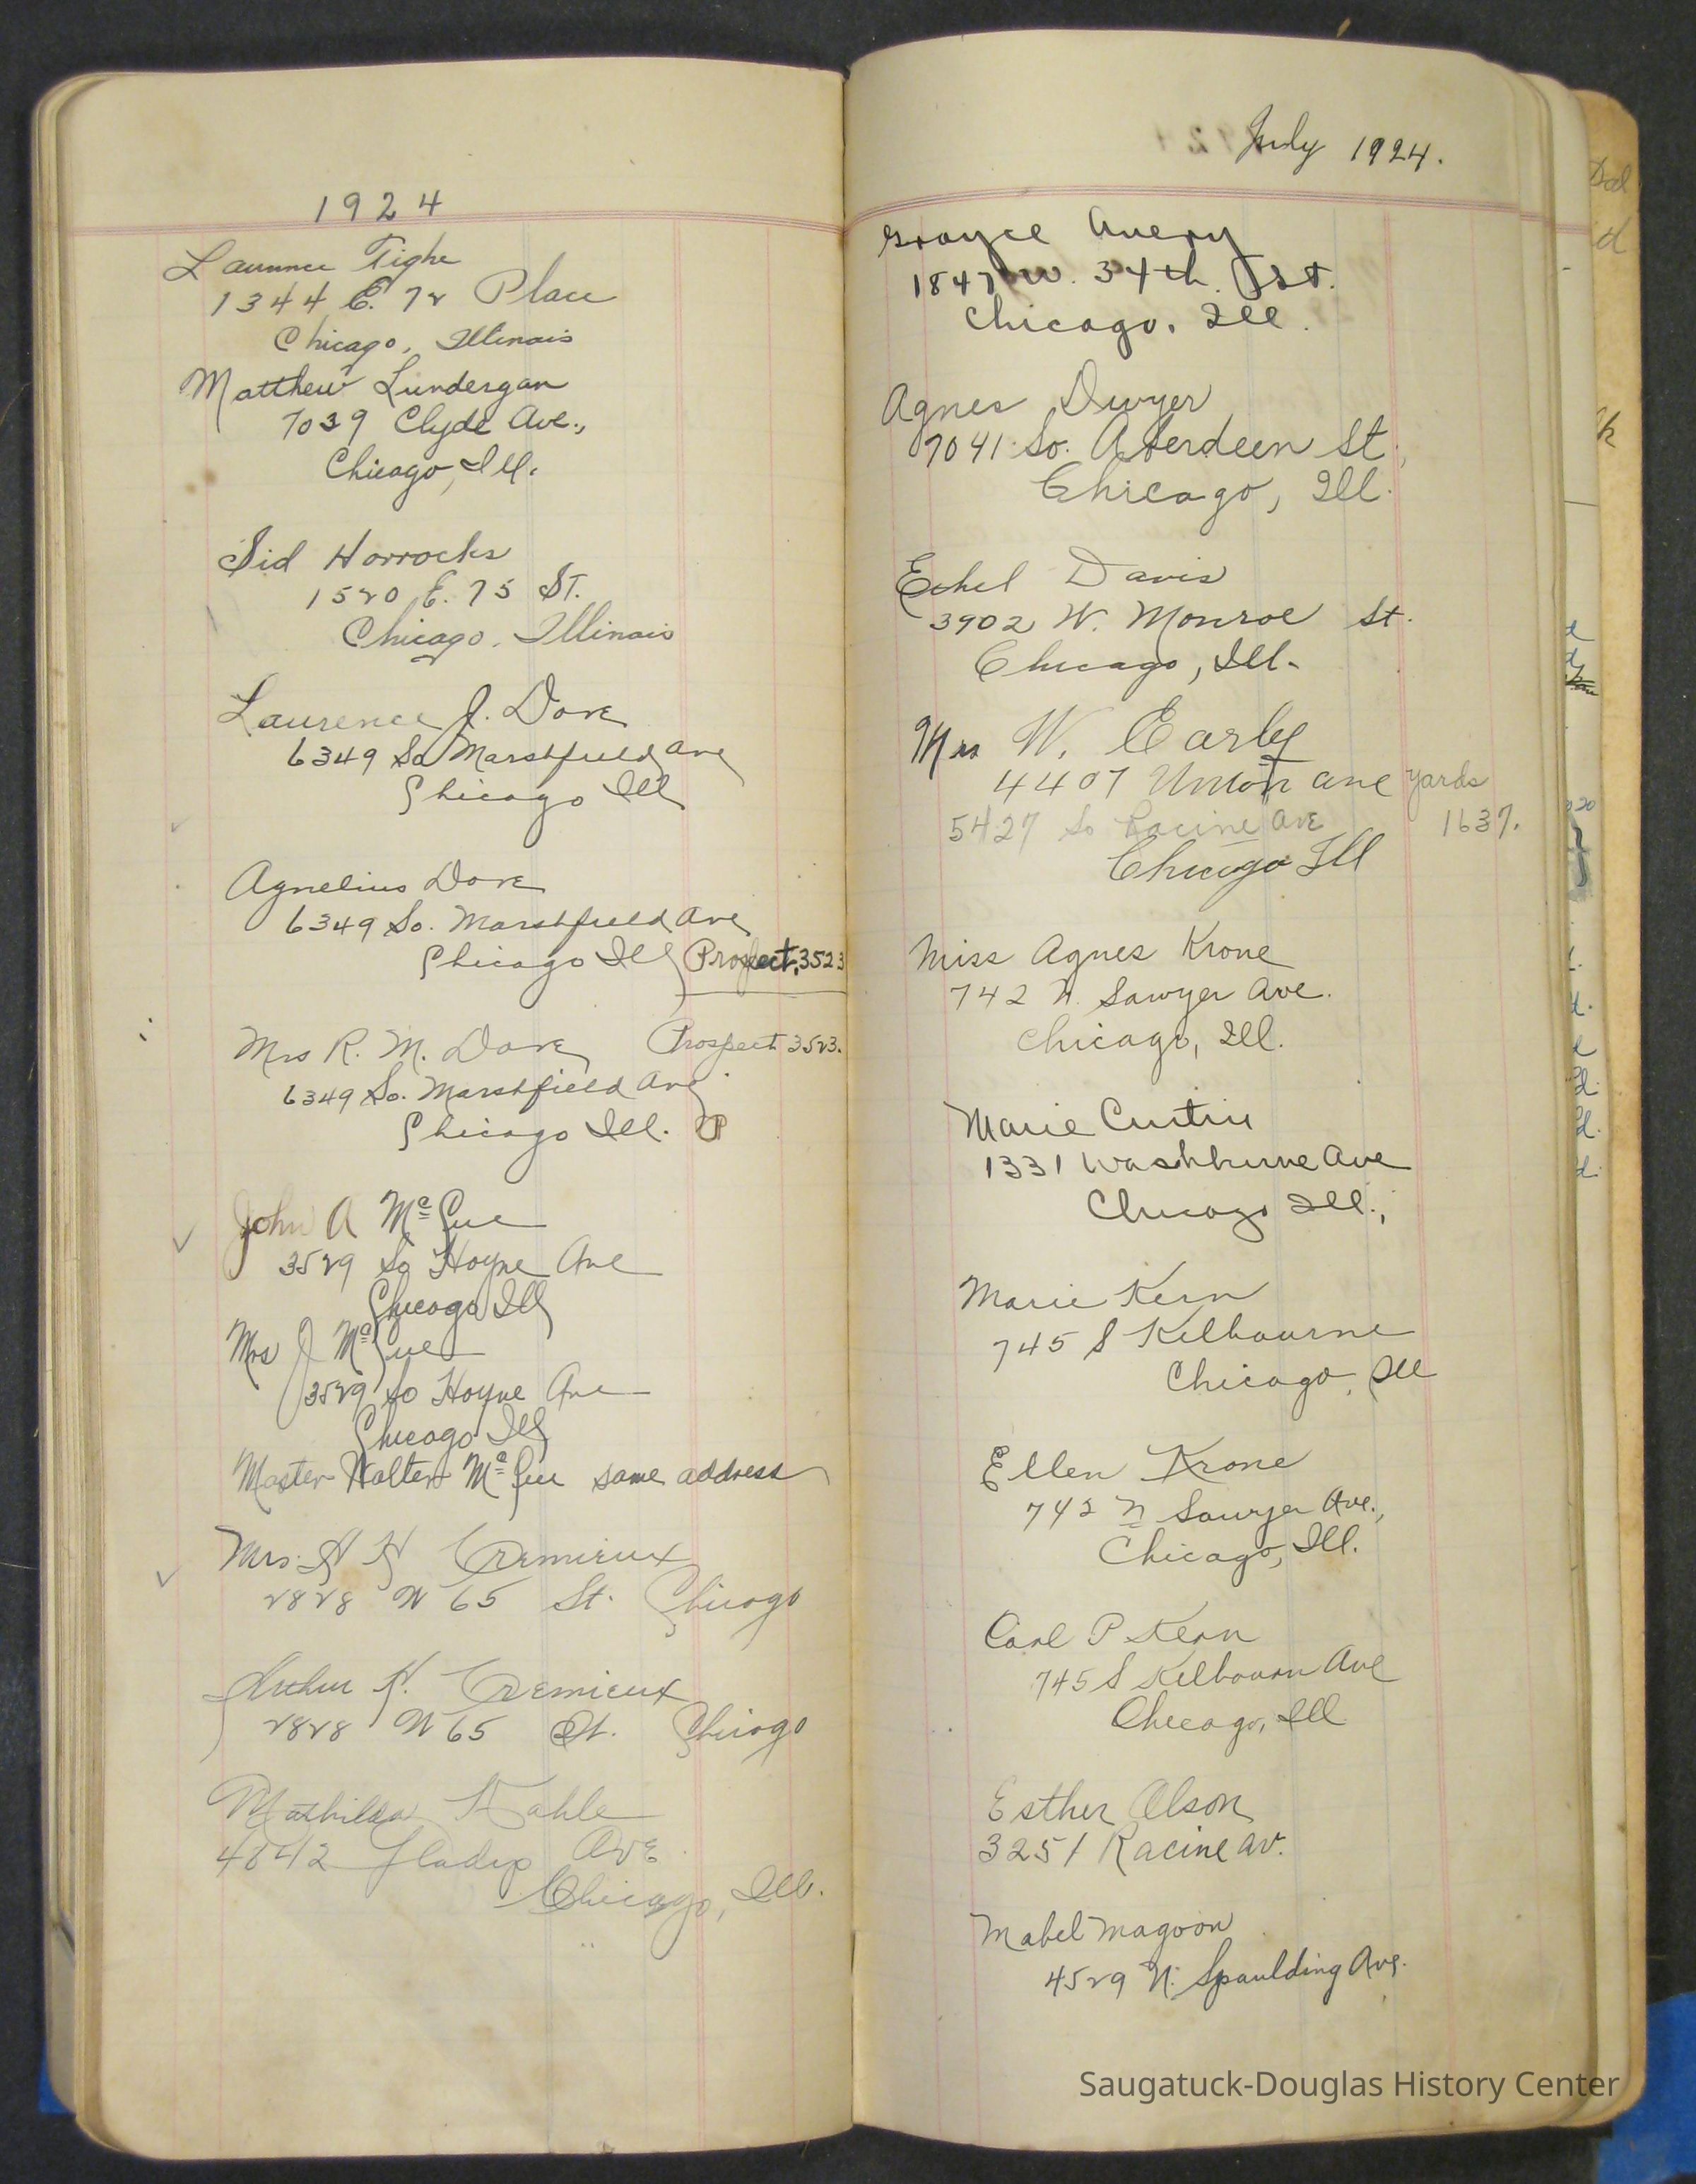 1924
Laurence Tighe
1344 E. 72 Place
Chicago, Illinois
Matthew Lundergan
7039 Clyde Ave.,
Chicago, Ill.
Sid Horrocks
1520 E. 75 St.
Chicago, Illinois
Laurence J. Dore
6349 So Marshfield Ave
Chicago Ill
Agnelius Dore
6349 So. Marshfield Ave
Chicago Ill Prospect 3523
Mrs R. M. Dore Prospect 3523.
6349 So. Marshfield Ave
Chicago Ill.
John A Mc Gue
3529 So Hoyne Ave
Chicago Ill
Mrs J Mc Gue
3529 So Hoyne Ave
Chicago Ill
Master Walter Mc Gue same address
Mrs. A H Cremieux
2828 W 65 St. Chicago
Arthur H. Cremieux
2828 W 65 St. Chicago
Mathilda Kahle
Ave
Chicago, Ill.
July 1924.
Grayce Avery
1847 W. 34th. St.
Chicago. Ill.
Agnes Dwyer
7041 So. Aberdeen St.,
Chicago, Ill.
Ethel Davis
3902 W. Monroe St.
Chicago, Ill.
Mrs W. Earley
4407 Union Ave yards
5427 So Racine Ave 1637.
Chicago Ill
Miss Agnes Krone
742 N. Sawyer Ave.
Chicago, Ill.
Marie Curtin
1331 Washburne Ave
Chicago Ill.,
Marie Kern
745 S Kilbourne
Chicago, Ill
Ellen Krone
742 N Sawyer Ave.,
Chicago, Ill.
Carl P Kern
745 S Kilbourn Ave
Chicago, Ill
Esther Olson
3251 Racine Av.
Mabel Magoon
4529 N. Spaulding Ave.
Saugatuck-Douglas History Center